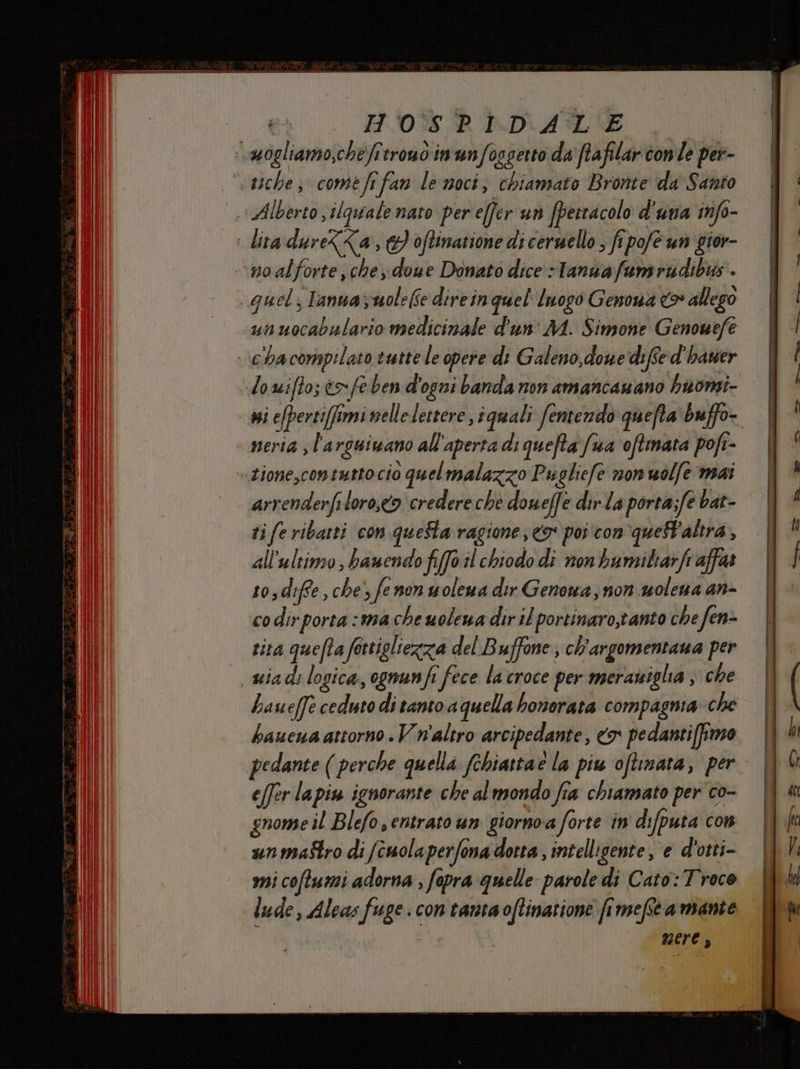 HOSPIDALE
uogliamo,che si trouò in un soggetto da stafilar con le per-
tiche, come si fan le noci, chiamato Bronte da Santo
Alberto, ilquale nato per esser un spettacolo d'una inso-
lita durezza, & ostinatione di ceruello, si pose un gior-
no al forte, che, doue Donato dice : Ianua sum rudibus.
quel, Ianua, uolesse dire in quel luogo Genoua & allegò
un uocabulario medicinale d'un M. Simone Genouese
c'ha compilato tutte le opere di Galeno, doue disse d'hauer
lo uisto; & se ben d'ogni banda non amancauano huomi-
ni espertissimi nelle lettere, i quali sentendo questa buffo-
neria, l'arguiuano all'aperta di questa sua ostinata posi-
tione, con tutto ciò quel malazzo Pugliese non uolse mai
arrendersi loro, & credere che douesse dir la porta; se bat-
ti se ribatti con questa ragione, & poi con quest'altra,
all'ultimo, hauendo fisso il chiodo di non humiliarsi affat
to, disse, che, se non uoleua dir Genoua, non uoleua an-
co dir porta : ma che uoleua dir il portinaro, tanto che sen-
tita questa sottigliezza del Buffone, ch'argomentaua per
uia di logica, ognun si fece la croce per merauiglia, che
hauesse ceduto di tanto a quella honorata compagnia che
haueua attorno. Vn'altro arcipedante, & pedantissimo
pedante ( perche quella schiatta è la piu ostinata, per
esser la piu ignorante che al mondo sia chiamato per co-
gnome il Bleso, entrato un giorno a forte in disputa con
un mastro di scuola persona dotta, intelligente, e d'otti-
mi costumi adorna, sopra quelle parole di Cato: Troco
lude, Aleas fuge. con tanta ostinatione si messe a mante
nere,